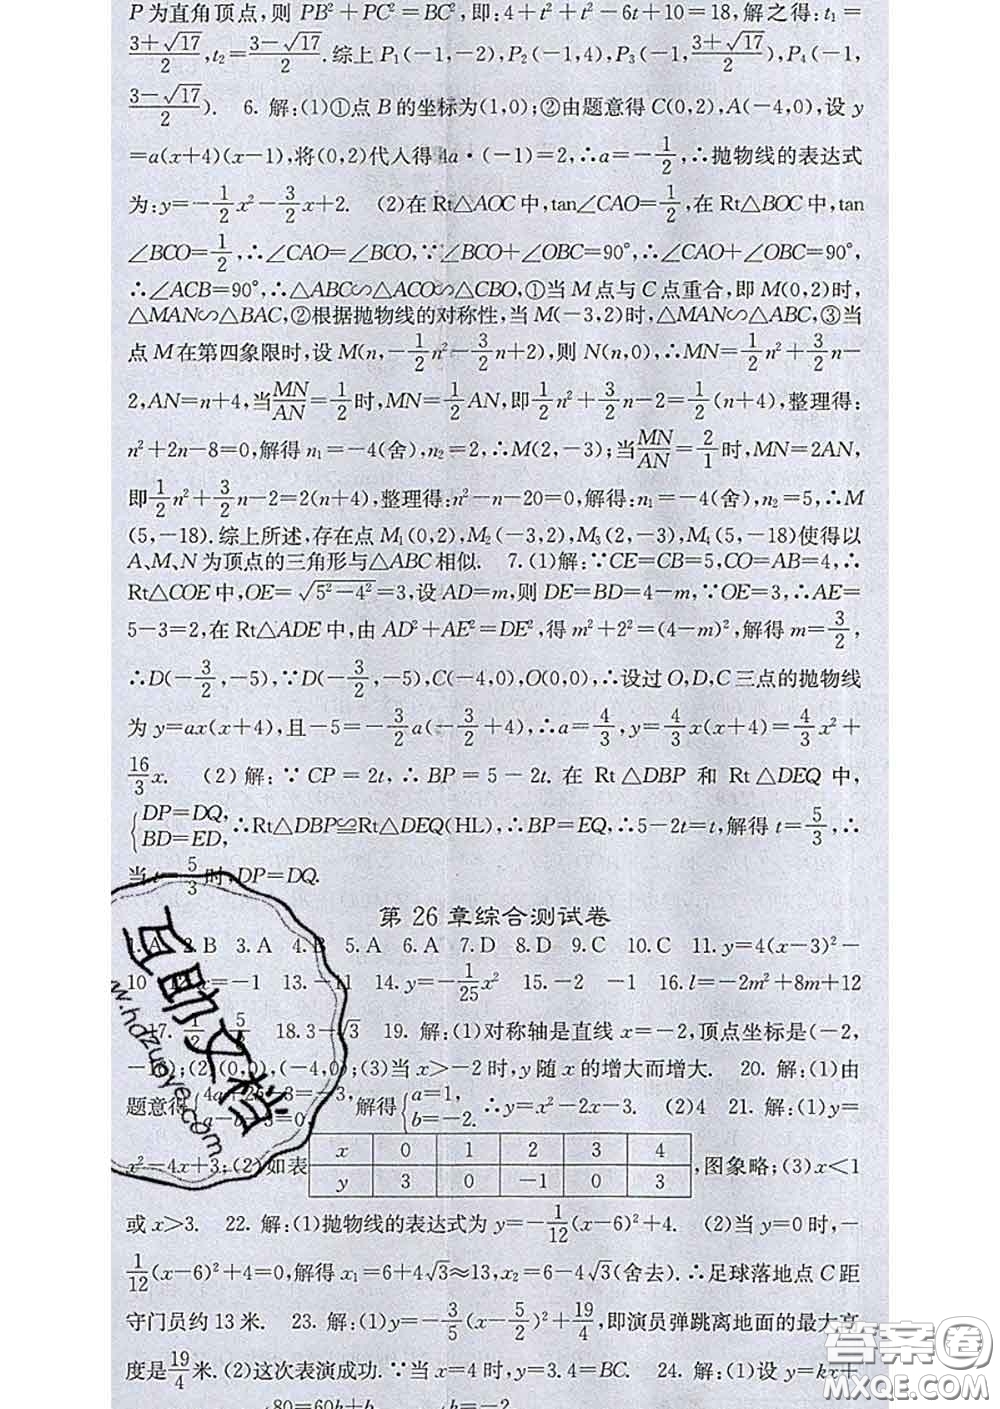 P为直角顶点,则 PB²+PC²=BC²,即:4+t²+t²-6t+10=18,解之得:t₁=
(3+√17)/2,t₂=(3-√17)/2.综上 P₁(-1,-2),P₂(-1,4),P₃(-1,(3+√17)/2),P₄(-1,
(3-√17)/2). 6. 解:(1)①点 B 的坐标为(1,0);②由题意得 C(0,2),A(-4,0),设 y
=a(x+4)(x-1),将(0,2)代人得 4a·(-1)=2,∴a=-1/2,∴抛物线的表达式
为:y=-1/2x²-3/2x+2. (2)在 Rt△AOC 中,tan∠CAO=1/2,在 Rt△BOC 中,tan
∠BCO=1/2,∴∠CAO=∠BCO,∵∠BCO+∠OBC=90°,∴∠CAO+∠OBC=90°,
∴∠ACB=90°,∴△ABC∽△ACO∽△CBO,①当 M 点与 C 点重合,即 M(0,2)时,
△MAN∽△BAC,②根据抛物线的对称性,当 M(-3,2)时,△MAN∽△ABC,③当
点 M 在第四象限时,设 M(n,-1/2n²-3/2n+2),则 N(n,0),∴MN=1/2n²+3/2n-
2,AN=n+4,当MN/AN=1/2时,MN=1/2AN,即1/2n²+3/2n-2=1/2(n+4),整理得:
n²+2n-8=0,解得 n₁=-4(舍),n₂=2,∴M(2,-3);当MN/AN=2/1时,MN=2AN,
即1/2n²+3/2n-2=2(n+4),整理得:n²-n-20=0,解得:n₁=-4(舍),n₂=5,∴M
(5,-18).综上所述,存在点 M₁(0,2),M₂(-3,2),M₃(2,-3),M₄(5,-18)使得以
A、M、N 为顶点的三角形与△ABC 相似. 7.(1)解:∵CE=CB=5,CO=AB=4,∴
Rt△COE 中,OE=√(5²-4²)=3,设 AD=m,则 DE=BD=4-m,∵OE=3,∴AE=
5-3=2,在 Rt△ADE 中,由 AD²+AE²=DE²,得 m²+2²=(4-m)²,解得 m=3/2,
∴D(-3/2,-5),∵D(-3/2,-5),C(-4,0),O(0,0),∴设过 O,D,C 三点的抛物线
为 y=ax(x+4),且-5=-3/2a(-3/2+4),∴a=4/3,y=4/3x(x+4)=4/3x²+
16/3x. (2)解:∵CP=2t,∴BP=5-2t.在 Rt△DBP 和 Rt△DEQ 中,
{DP=DQ, BD=ED,∴Rt△DBP≌Rt△DEQ(HL),∴BP=EQ,∴5-2t=t,解得 t=5/3,∴
当 t=5/3时,DP=DQ.
第 26 章综合测试卷
1.A 2.B 3.A 4.B 5.A 6.A 7.D 8.D 9.C 10.C 11.y=4(x-3)²-
10 12.x=-1 13.-11 14.y=-1/25x² 15.-2 -1 16.l=-2m²+8m+12
17. 1/2 5/ 18.3-√3 19. 解:(1)对称轴是直线 x=-2,顶点坐标是(-2,
(2)(0,0),(-4,0);(3)当 x>-2 时,y 随 x 的增大而增大. 20. 解:(1)由
题意得 解得{a=1, b=-2. ∴y=x²-2x-3. (2)4 21. 解:(1)y=
x²-4x+3;(2)如表 x 0 1 2 3 4 ,图象略;(3)x<1
y 3 0 -1 0 3
或 x>3. 22. 解:(1)抛物线的表达式为 y=-1/12(x-6)²+4. (2)当 y=0 时,-
1/12(x-6)²+4=0,解得 x₁=6+4√3≈13,x₂=6-4√3(舍去).∴足球落地点 C 距
守门员约 13 米. 23. 解:(1)y=-3/5(x-5/2)²+19/4,即演员弹跳离地面的最大高
度是19/4米.(2)这次表演成功.∵当 x=4 时,y=3.4=BC. 24. 解:(1)设 y=kx+
80=60k+b k=-2
互助文档
w.hdzuoye.com
答案圈
MXQE.COM